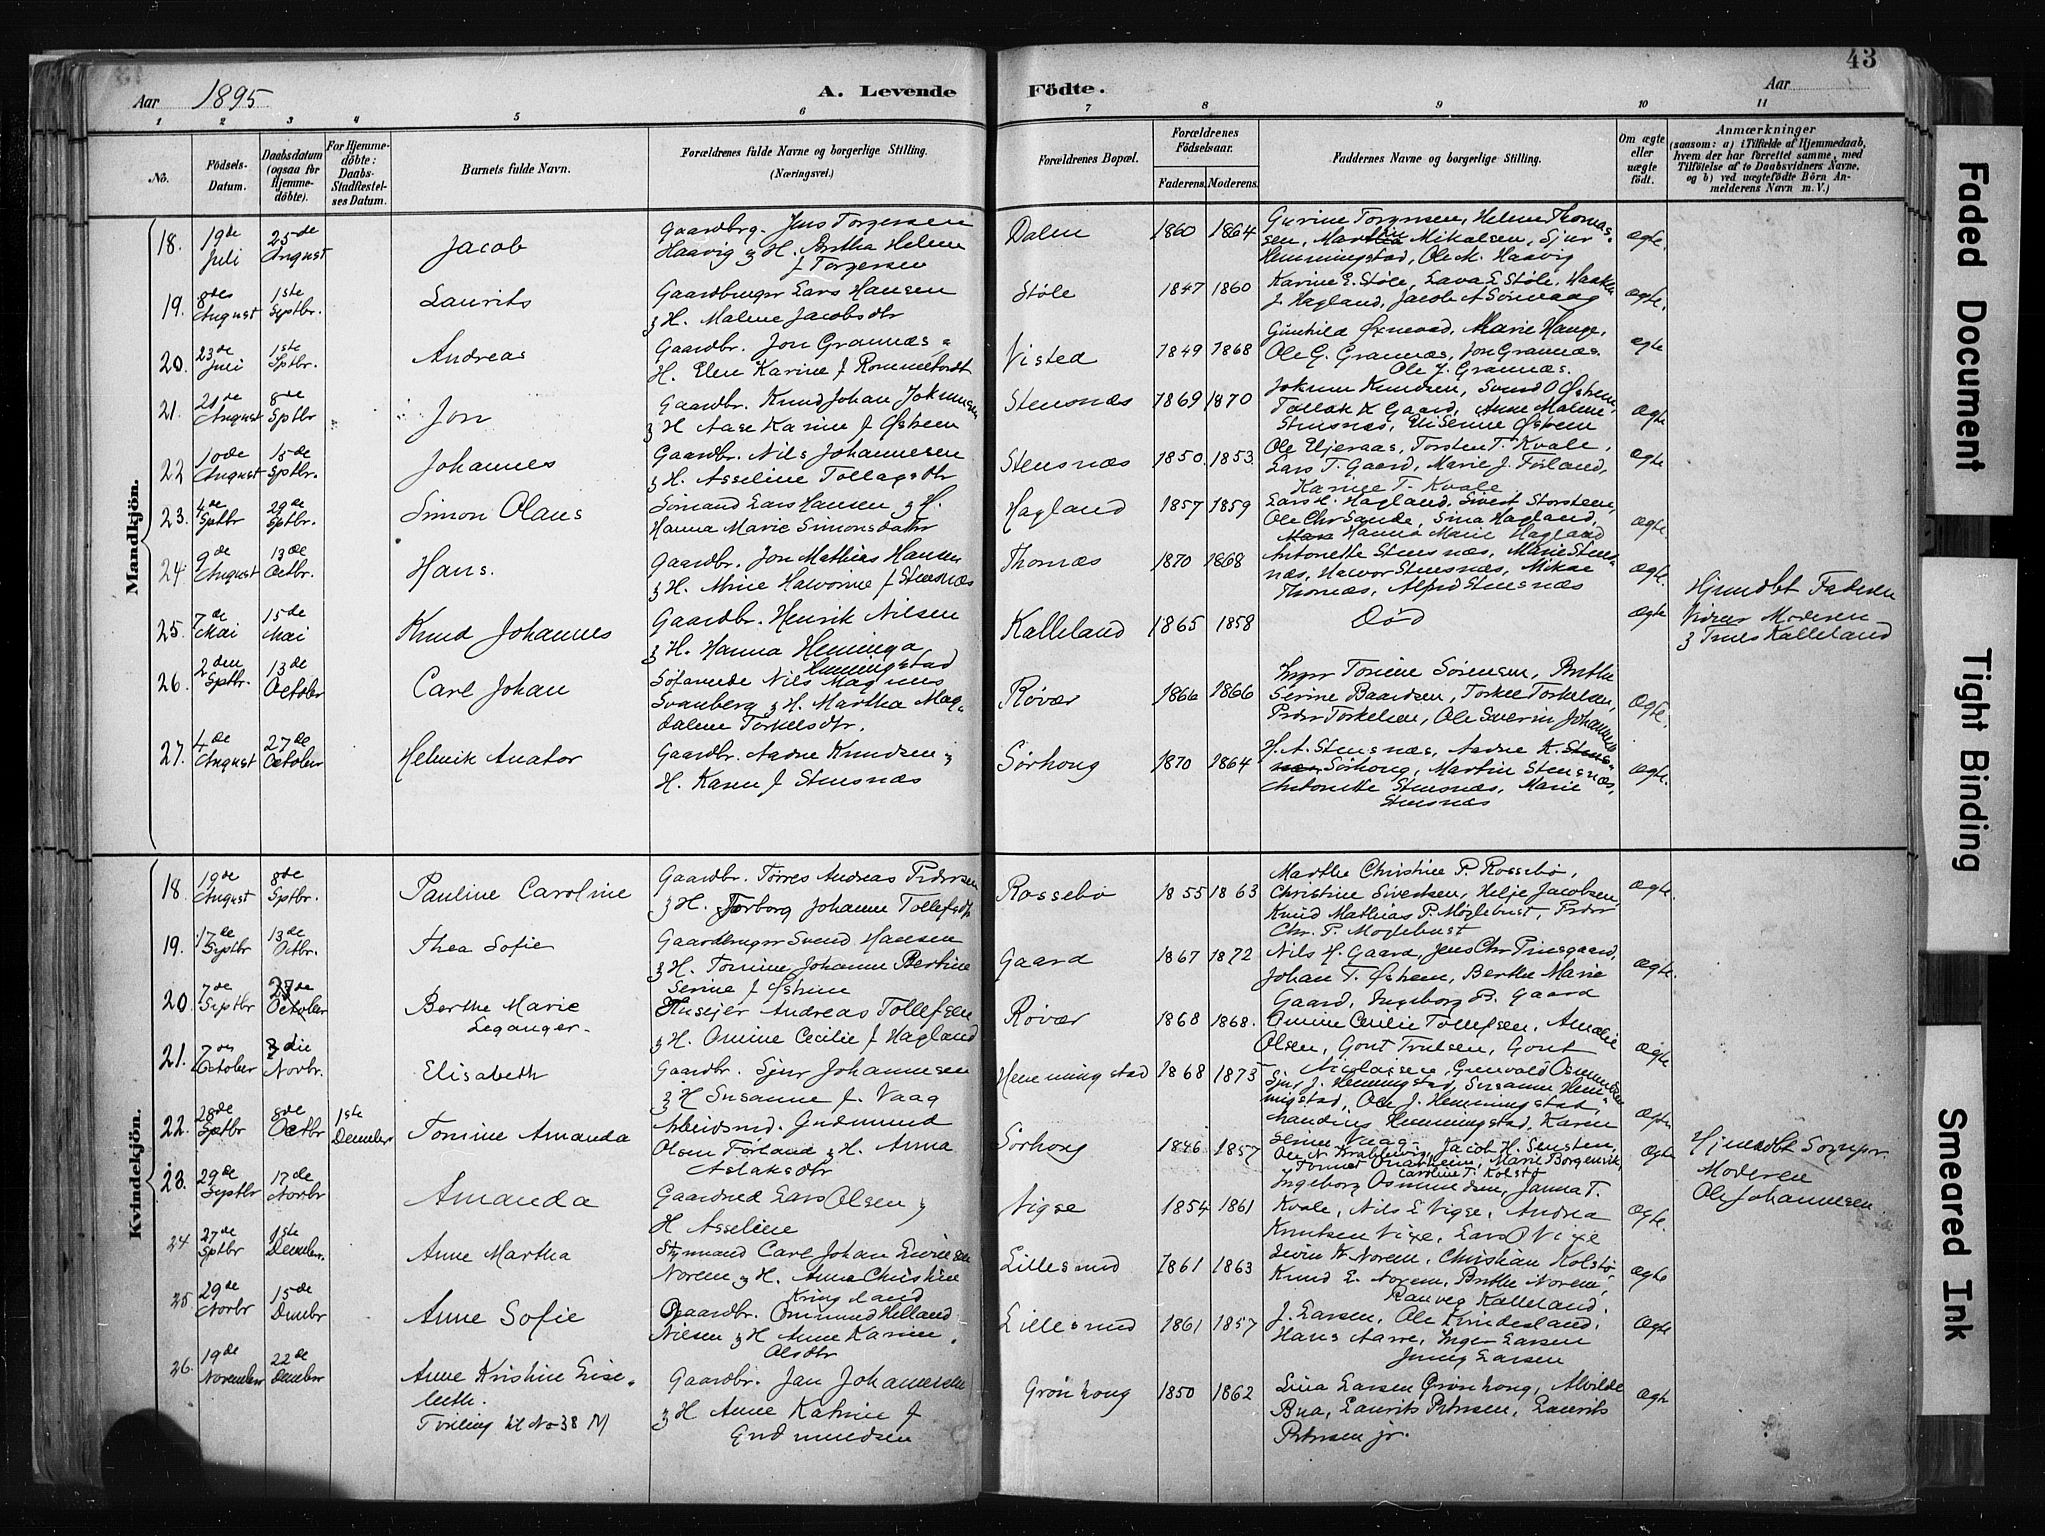 43
Aar 1895
A. Levende Födte.
Aar
1 2 3 4 5 6 7 8 9 10 11
No.
Födsels-Datum.
Daabsdatum (ogsaa for Hjemme-döbte).
For Hjemme-döbte: Daabs-Stadfæstel-ses Datum.
Barnets fulde Navn.
Forældrenes fulde Navne og borgerlige Stilling.
(Næringsvei.)
Forældrenes Bopæl.
Forældrenes Födselsaar.
Faderens. Moderens.
Faddernes Navne og borgerlige Stilling.
Om ægte eller uægte födt.
Anmærkninger
(saasom: a) i Tilfælde af Hjemmedaab, hvem der har forrettet samme, med Tilföielse af to Daabsvidners Navne, og b) ved uægtefödte Börn An-melderens Navn m. V.)
Mandkjön.
18. 19de Juli 25de August Jacob
Gaardbrg. Jens Torgersen
Haavig & H. Bertha Helene
f Torgersen
Dalen 1860 1864
Gurine Torgersen, Helene Thomas-
sen, Mikalsen, Sjur
Hemmingstad, Ole M. Haavig
Ægte.
19. 8des August 1ste Septbr. Laurits
Gaardbruger Lars Hansen
& H. Malene Jacobsdtr
Støle 1847 1860
Karine E. Støle, Lava E Støle, Haaken
J. Hagland, Jacob A Sørvaag
Ægte.
20. 23de Juli 1ste Sptbr. Andreas
Gaardbr. Jon Grannæs &
H. Elen Karine f Rommetvedt
Visted 1849 1868
Gunhild Øxnevad, Marie Hauge,
Ole G. Grannæs, Jon Grannæs
Ole J. Grannæs.
Ægte
21. 21de August 8de Sptbr Jon
Gaardbr. Knud Johan Jokumsen
& H Aase Karine f Østrem
Stensnæs 1869 1870
Jokum Knudsen, Svend O Østrem,
Tollak K Gaard, Anne Malene
Stensnæs, Østrem
Ægte
22 10de August 15de Sptbr. Johannes
Gaardbr. Nils Johannesen
& H. Asseline Tollagsdtr
Stensnæs 1850. 1853.
Ole Eljeraas, Torsten T. Kvale,
Lars T. Gaard, Marie J. Førland,
Karine T. Kvale
Ægte
23. 4de Sptbr 29de Sptbr. Simon Olaus
Sømand Lars Hansen & H.
Hanna Marie Simonsdatter
Hagland 1857 1859
Lars H. Hagland, Sivert Storsteen,
Ole Chr Sande, Sina Hagland,
Hanna Marie Hagland
Ægte.
24 9de August 13de Octbr. Hans.
Gaardbr. Jon Mathias Hansen
& H. Mine Halvorine f Stensnæs
Thomæs 1870 1868
Antonette Stensnæs, Marie Stens-
næs, Halvor Stensnæs, Mikal
Thomæs, Alfred Stensnæs
Ægte.
25. 7de Mai 15de Mai Knud Johannes
Gaardbr. Henrik Nilsen
& H. Hanna
Hemmingstad
Kalleland 1865 1858
Død
Ægte
Hjemdbt Faderen
Vidner Moderen
& Truls Kalleland
26. 2den Sptbr. 13de October Carl Johan
Søfarende Nils Magnus
Svanberg & H. Martha Mag-
dalene Torkelsdtr.
Røvær 1866 1866
Inger Tomine Sørensen, Brithe
Serine Baardsen, Torkel Torkelsen,
Peder Torkelsen, Ole Severin Johannesen
Ægte.
27. 4de August 27de October Helmik Anator
Gaardbr. Aadne Knudsen &
H. Karen f Stensnæs
Sørhoug 1870 1864
H. A. Stensnæs, Aadne K. Stens-
næs, Sørhoug, Martin Stensnæs,
Antonette Stensnæs, Marie
Stensnæs
Ægte.
Kvindekjön.
18 19de August 8de Sptbr. Pauline Caroline
Gaardbr. Tørres Andreas Pedersen
& H. Torborg Johanne Tollefsdtr
Rossebø 1855 1863
Marthe Christine P. Rossebø,
Christine Sivertsen, Helje Jacobsen,
Knud Mathias P. Møglebust, Peder
Chr. P. Møglebust
Ægte.
19. 17de Septbr 13de Octbr. Thea Sofie
Gaardbruger Svend Hansen
& H. Tomine Johanne Bertine
Serine f Østrem
Gaard 1867 1872
Nils H. Gaard, Jens Chr
Johan T. Østrem, Berthe Marie
Gaard, Ingeborg B. Gaard
Ægte.
20. 7de Septbr 27de October Berthe Marie
Leganger.
Husejer Andreas Tollefsen
& H. Omine Cecilie f Hagland
Røvær 1868 1868.
Omine Cecilie Tollefsen, Amalie
Olsen, Gout Trulsen, Gout
Nicolassen,
Ægte
21. 7de October 3die Novbr. Elisabeth
Gaardbr. Sjur Johannesen
& H Susanne f. Vaag
Hemmingstad 1868 1873
Sjur J. Hemmingstad, Susanne Hem-
mingstad, Ole J. Hemmingstad,
Hemmingstad, Karen
Vaag
Ægte
22. 28de Sptbr 8de Octbr 1ste Decmber Tomine Amanda
Arbeidsmd. Gudmund
Olsen Førland & H. Anna
Aslaksdtr
Sørhoug 1846 1857
Ole N. Jacob H.
Marie Borgenvik,
Caroline T. Kolstø
Ægte
Hjemdbt
Moderen
Ole Johannesen
23. 29de Septbr 17de Novbr Amanda
Gaardmd Lars Olsen &
H Asseline
Vigse 1854 1861
Ingeborg Osmundsen, Janna T.
Kvale, Nils L Vigse, Andrea
Knutsen Vixe, Lars O Vixe
Ægte.
24 27de Sptbr 1ste Decmber. Anne Martha
Styrmand Carl Johan
Noreen & H. Anna Christine
Kringeland
Lillesund 1861 1863
W Norem, Christian Kolstø,
Knud E. Norem, Brithe Norem,
Ranveg Kalleland.
Ægte
25. 29de Novbr 15de Decmbr Anne Sofie
Gaardbr. Omund Helland
Nielsen & H Anne Karine
Olsdtr
Lillesund 1861 1857
J. Larsen, Ole Kindesland,
Hans Aarre, Inger Larsen
Jenny Larsen
Ægte
26. 19de November 22de December Anne Kristine Lise-
beth.
Tvilling til No 38 M
Gaardbr. Jan Johannesen
& H Anne Katrine f
Gudmundsen
Grønhoug 1850 1862
Lina Larsen Grønhoug, Alvilde
Bua, Laurits Petersen, Laurits
Petersen jr.
Ægte
Faded Document
Tight Binding
Smeared Ink